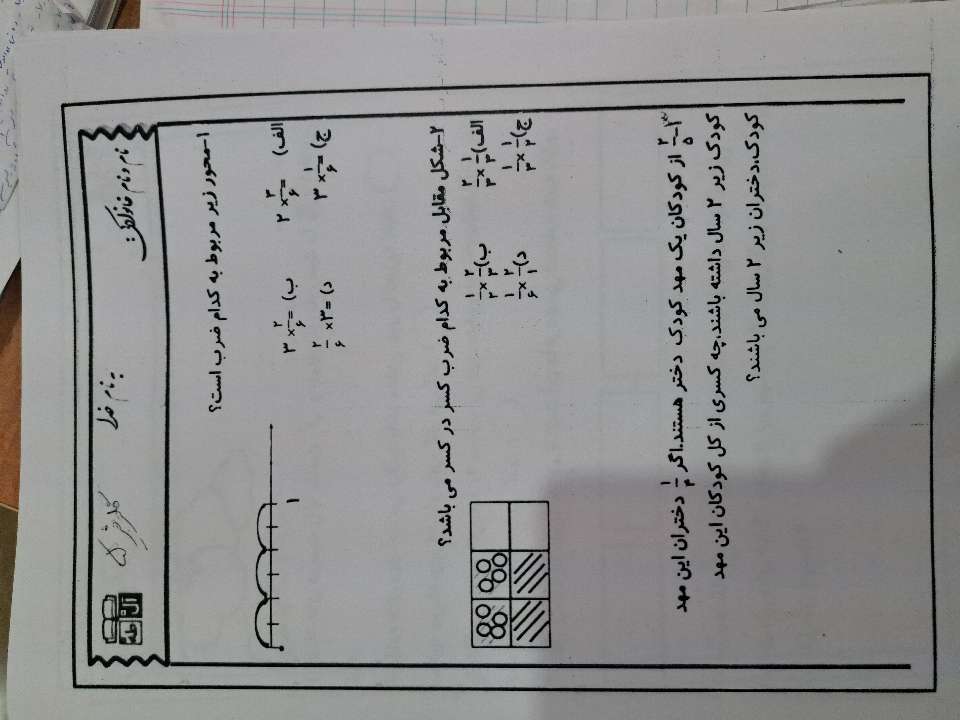 نام و نام خانوادگی: به نام خدا
۱-محور زیر مربوط به کدام ضرب است؟
الف) ۲×۳/۶= ب) ۳×۲/۶=
ج) ۳×۱/۶= د) ۲/۶×۳=
۱
۲-شکل مقابل مربوط به کدام ضرب کسر در کسر می باشد؟
الف) ۲/۳×۱/۳ ب) ۱/۲×۲/۳
ج) ۱/۳×۱/۲ د) ۱/۶×۲/۱
۳-۲/۵ از کودکان یک مهد کودک دختر هستند.اگر ۱/۴ دختران این مهد
کودک زیر ۲ سال داشته باشند،چه کسری از کل کودکان این مهد
کودک،دختران زیر ۲ سال می باشند؟